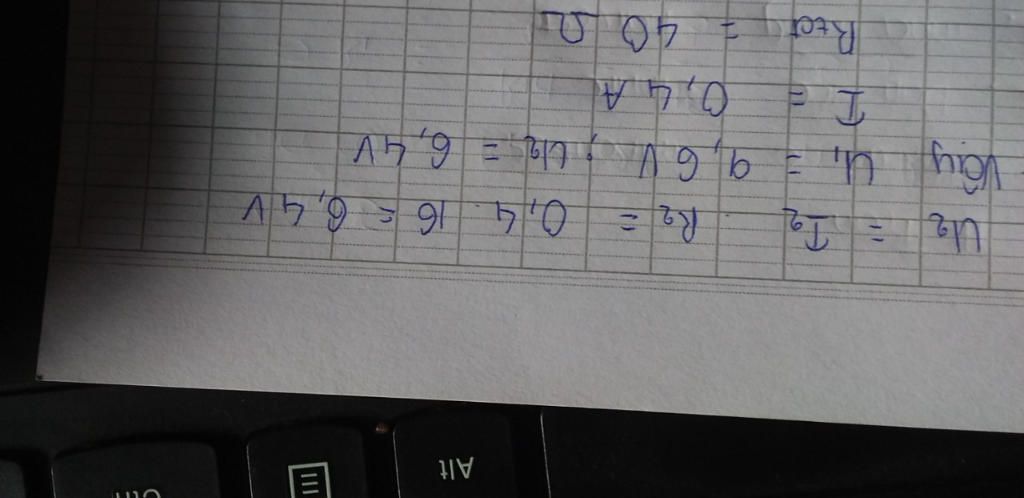 U2 = I2 . R2 = 0,4 . 16 = 6,4 V
Vậy U1 = 9,6 V ; U2 = 6,4V
I = 0,4 A
Rtđ = 40 Ω
Alt